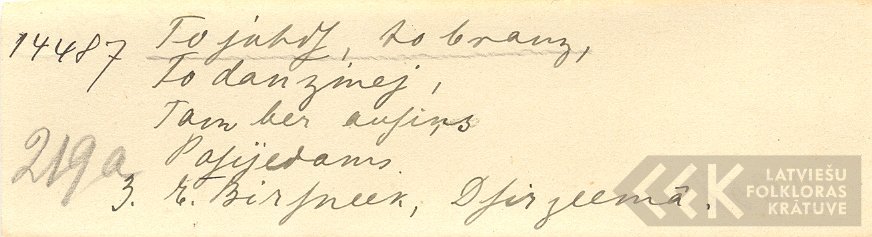 14487 To jahdſ, to branz,
To danzinej,
Tam ber auſiņs
Paſijedams
219a
3. E. Birſneek, Dſirzeemā.
LATVIEŠU
FOLKLORAS
KRĀTUVE